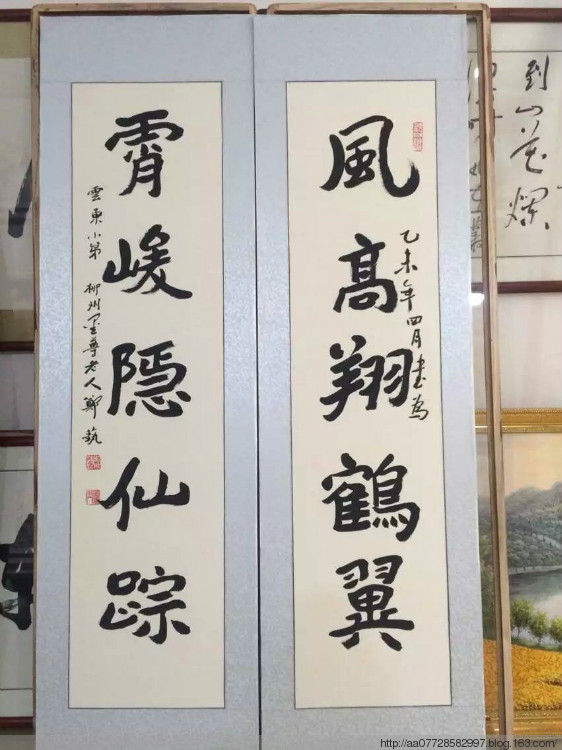 風高翔鶴翼
乙未年四月書為
霄峻隱仙踪
雲東小弟 柳州墨尊老人鄭藝
到山花爛
http://aa07728582997.blog.163.com/